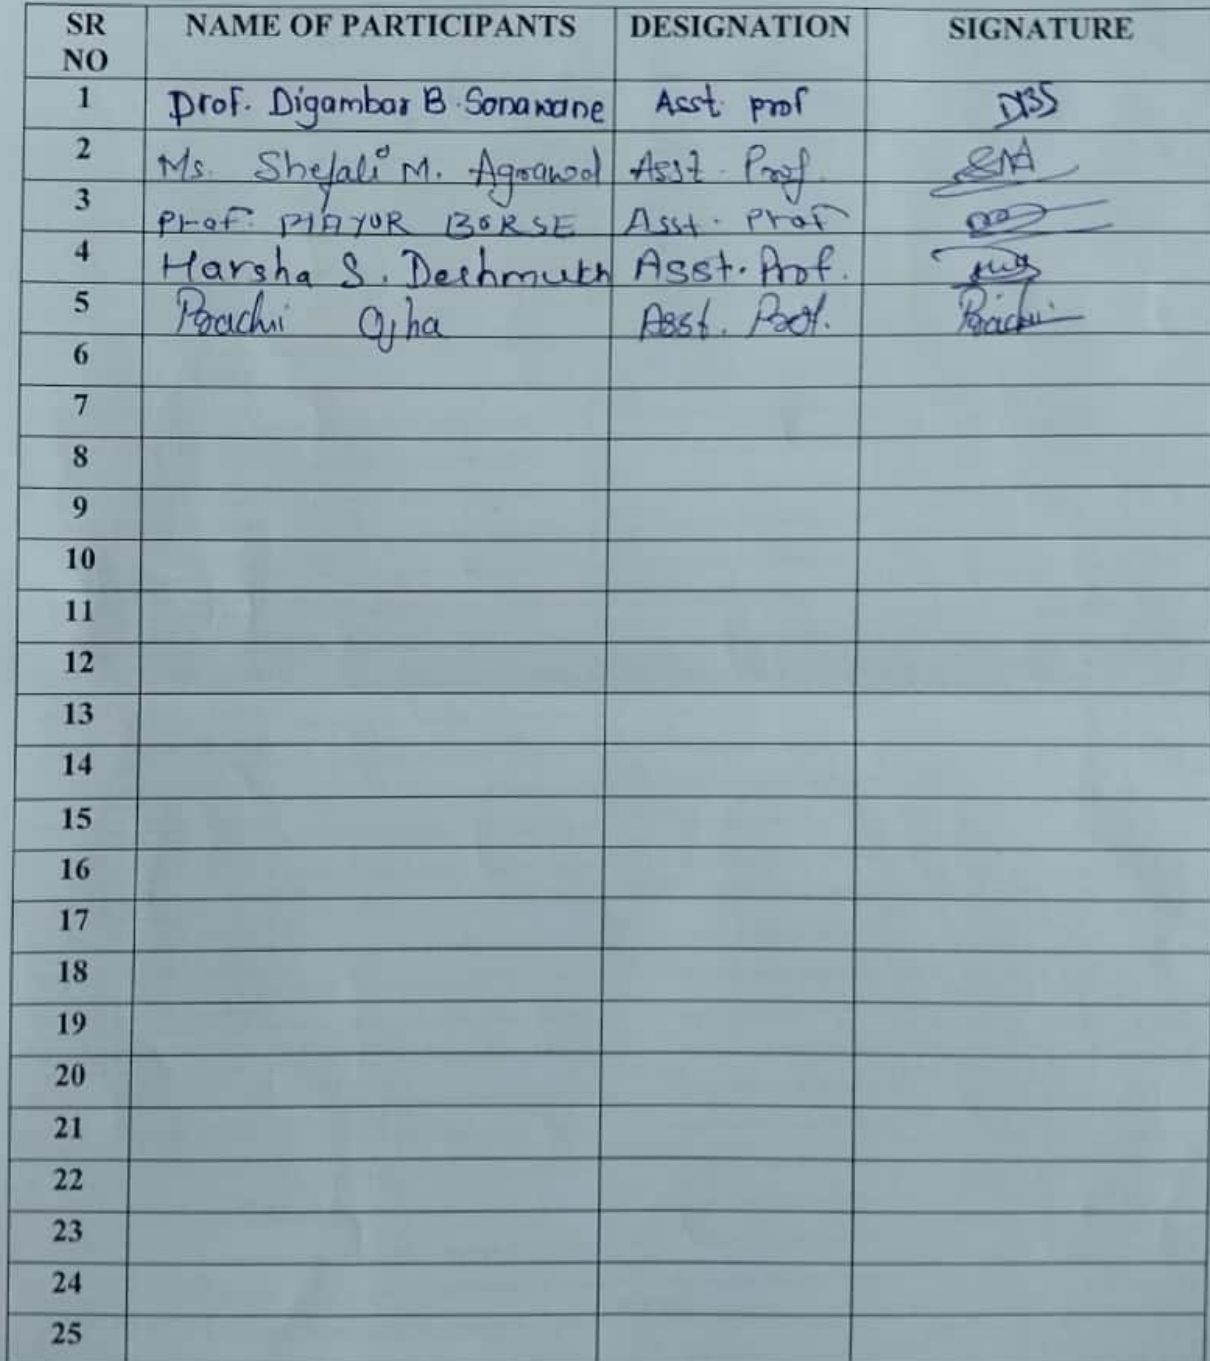 SR NO NAME OF PARTICIPANTS DESIGNATION SIGNATURE
1 Prof. Digambar B. Sonawane Asst. prof DBS
2 Ms. Shefali M. Agrawal Asst. Prof. SMA
3 Prof. MAYUR BORSE Asst. Prof
4 Harsha S. Deshmukh Asst. Prof.
5 Prachi Ojha Asst. Prof. Prachi
6
7
8
9
10
11
12
13
14
15
16
17
18
19
20
21
22
23
24
25